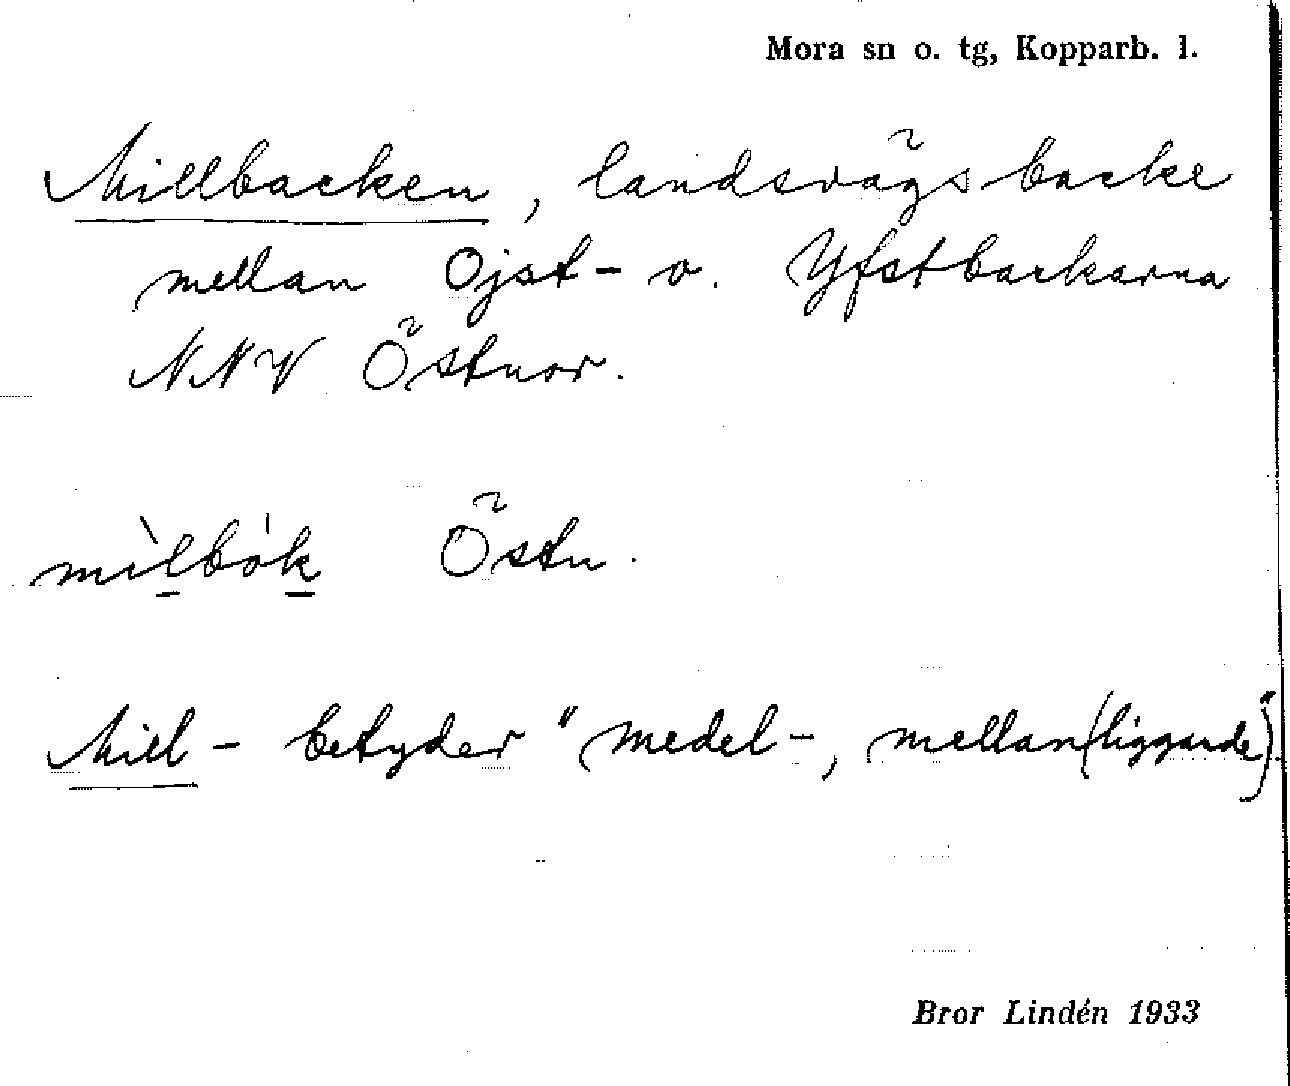 Mora sn o. tg, Kopparb. l.
Millbacken, landsvägsbacke
mellan Ojst- o. Yfstbackarna
NNV Östnor.
mìlbók Östn.
Mill- betyder "medel-, mellan(liggande)".
Bror Lindén 1933